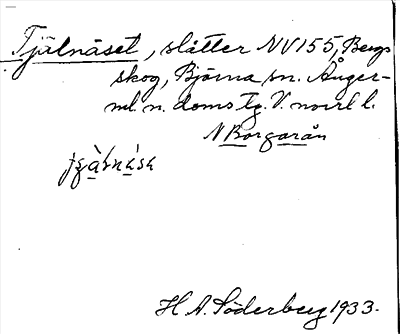 Tjälnäset, slåtter NV155, Bergs
skog, Björna sn. Ånger-
ml. n. doms tg. V. norrl l.
N Borgarån
H. A. Söderberg 1933.